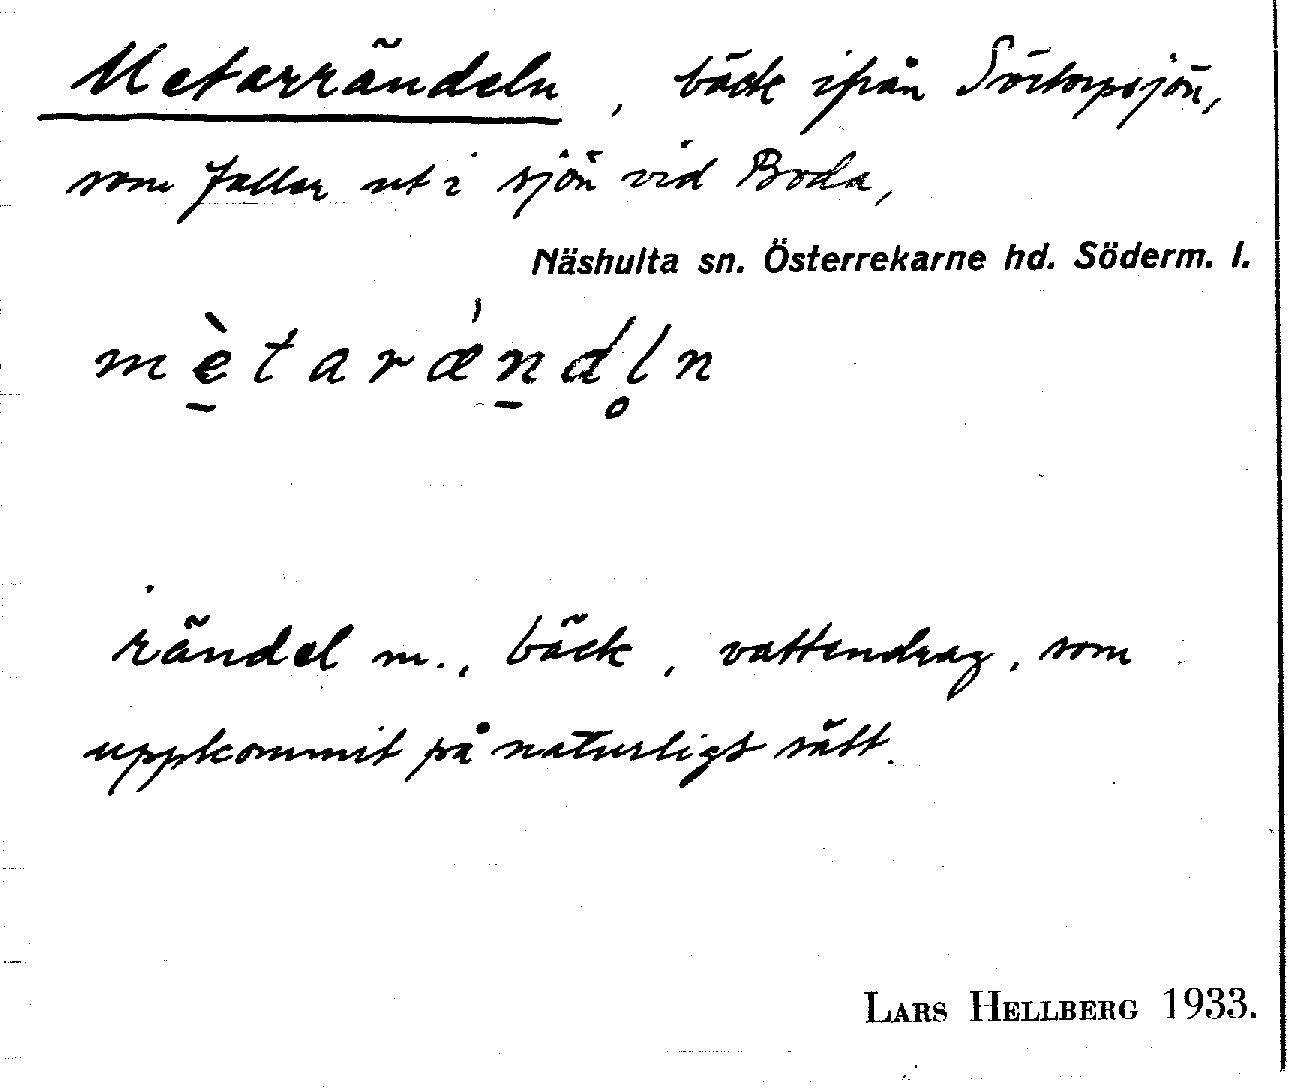 Metarrändeln, bäck ifrån Sörtorpsjön,
som faller ut i sjön vid Boda,
Näshulta sn. Österrekarne hd. Söderm. l.
mètarǽndl̥n
rändel m., bäck, vattendrag, som
uppkommit på naturligt sätt.
LARS HELLBERG 1933.